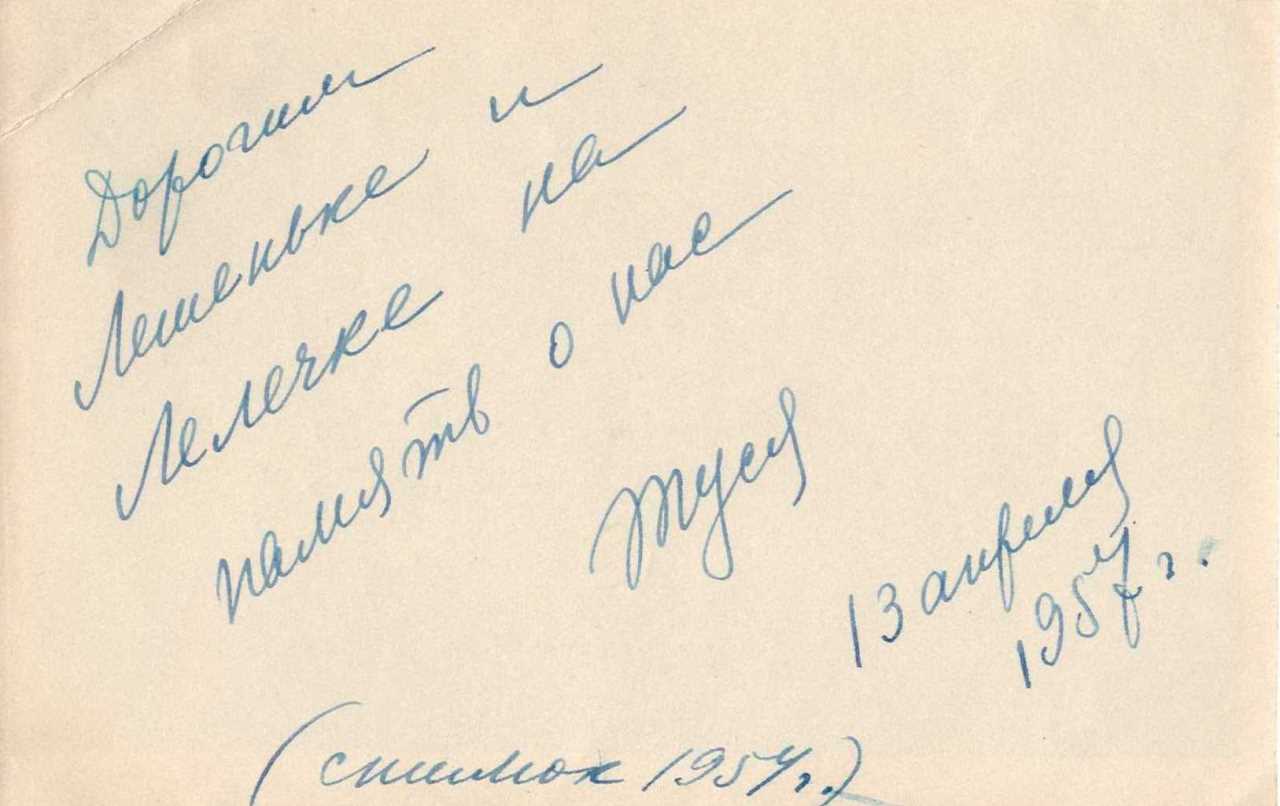 Дорогим
Лешеньке и
Лелечке на
память о нас
Туся
13 апреля
1957 г.
(снимок 1954 г.)